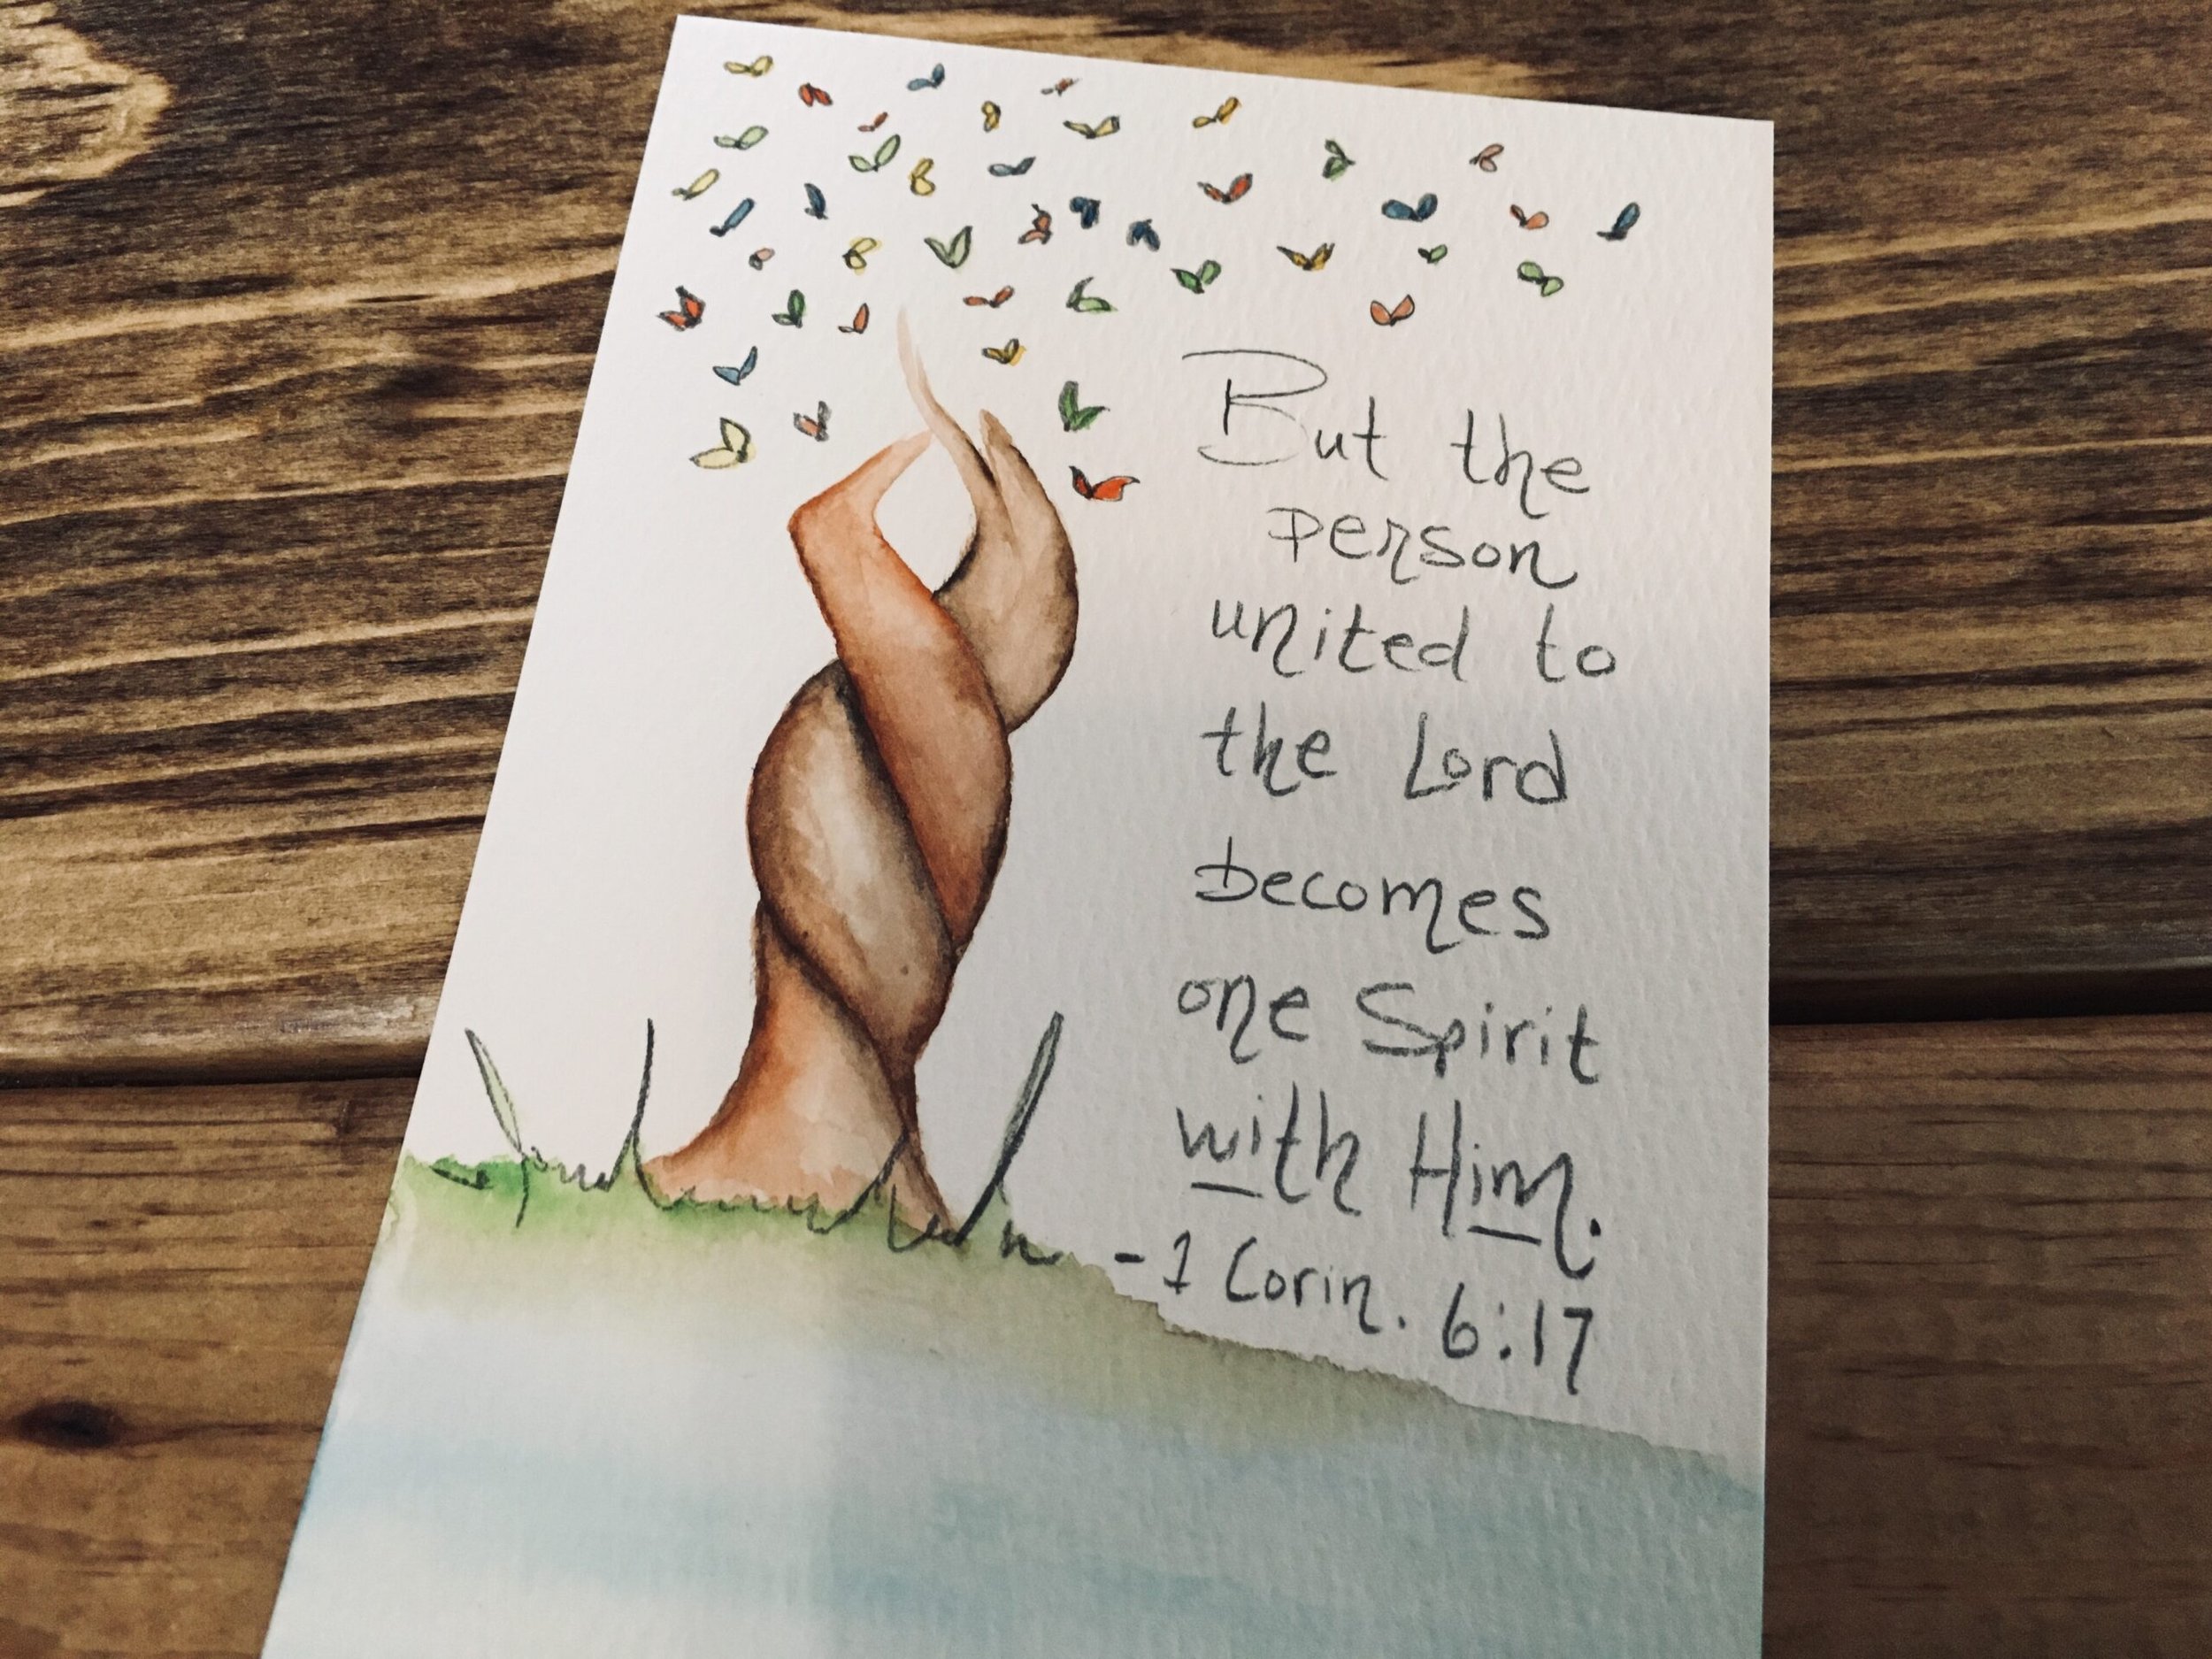 But the
person
united to
the Lord
becomes
one Spirit
with Him.
- 1 Corin. 6:17